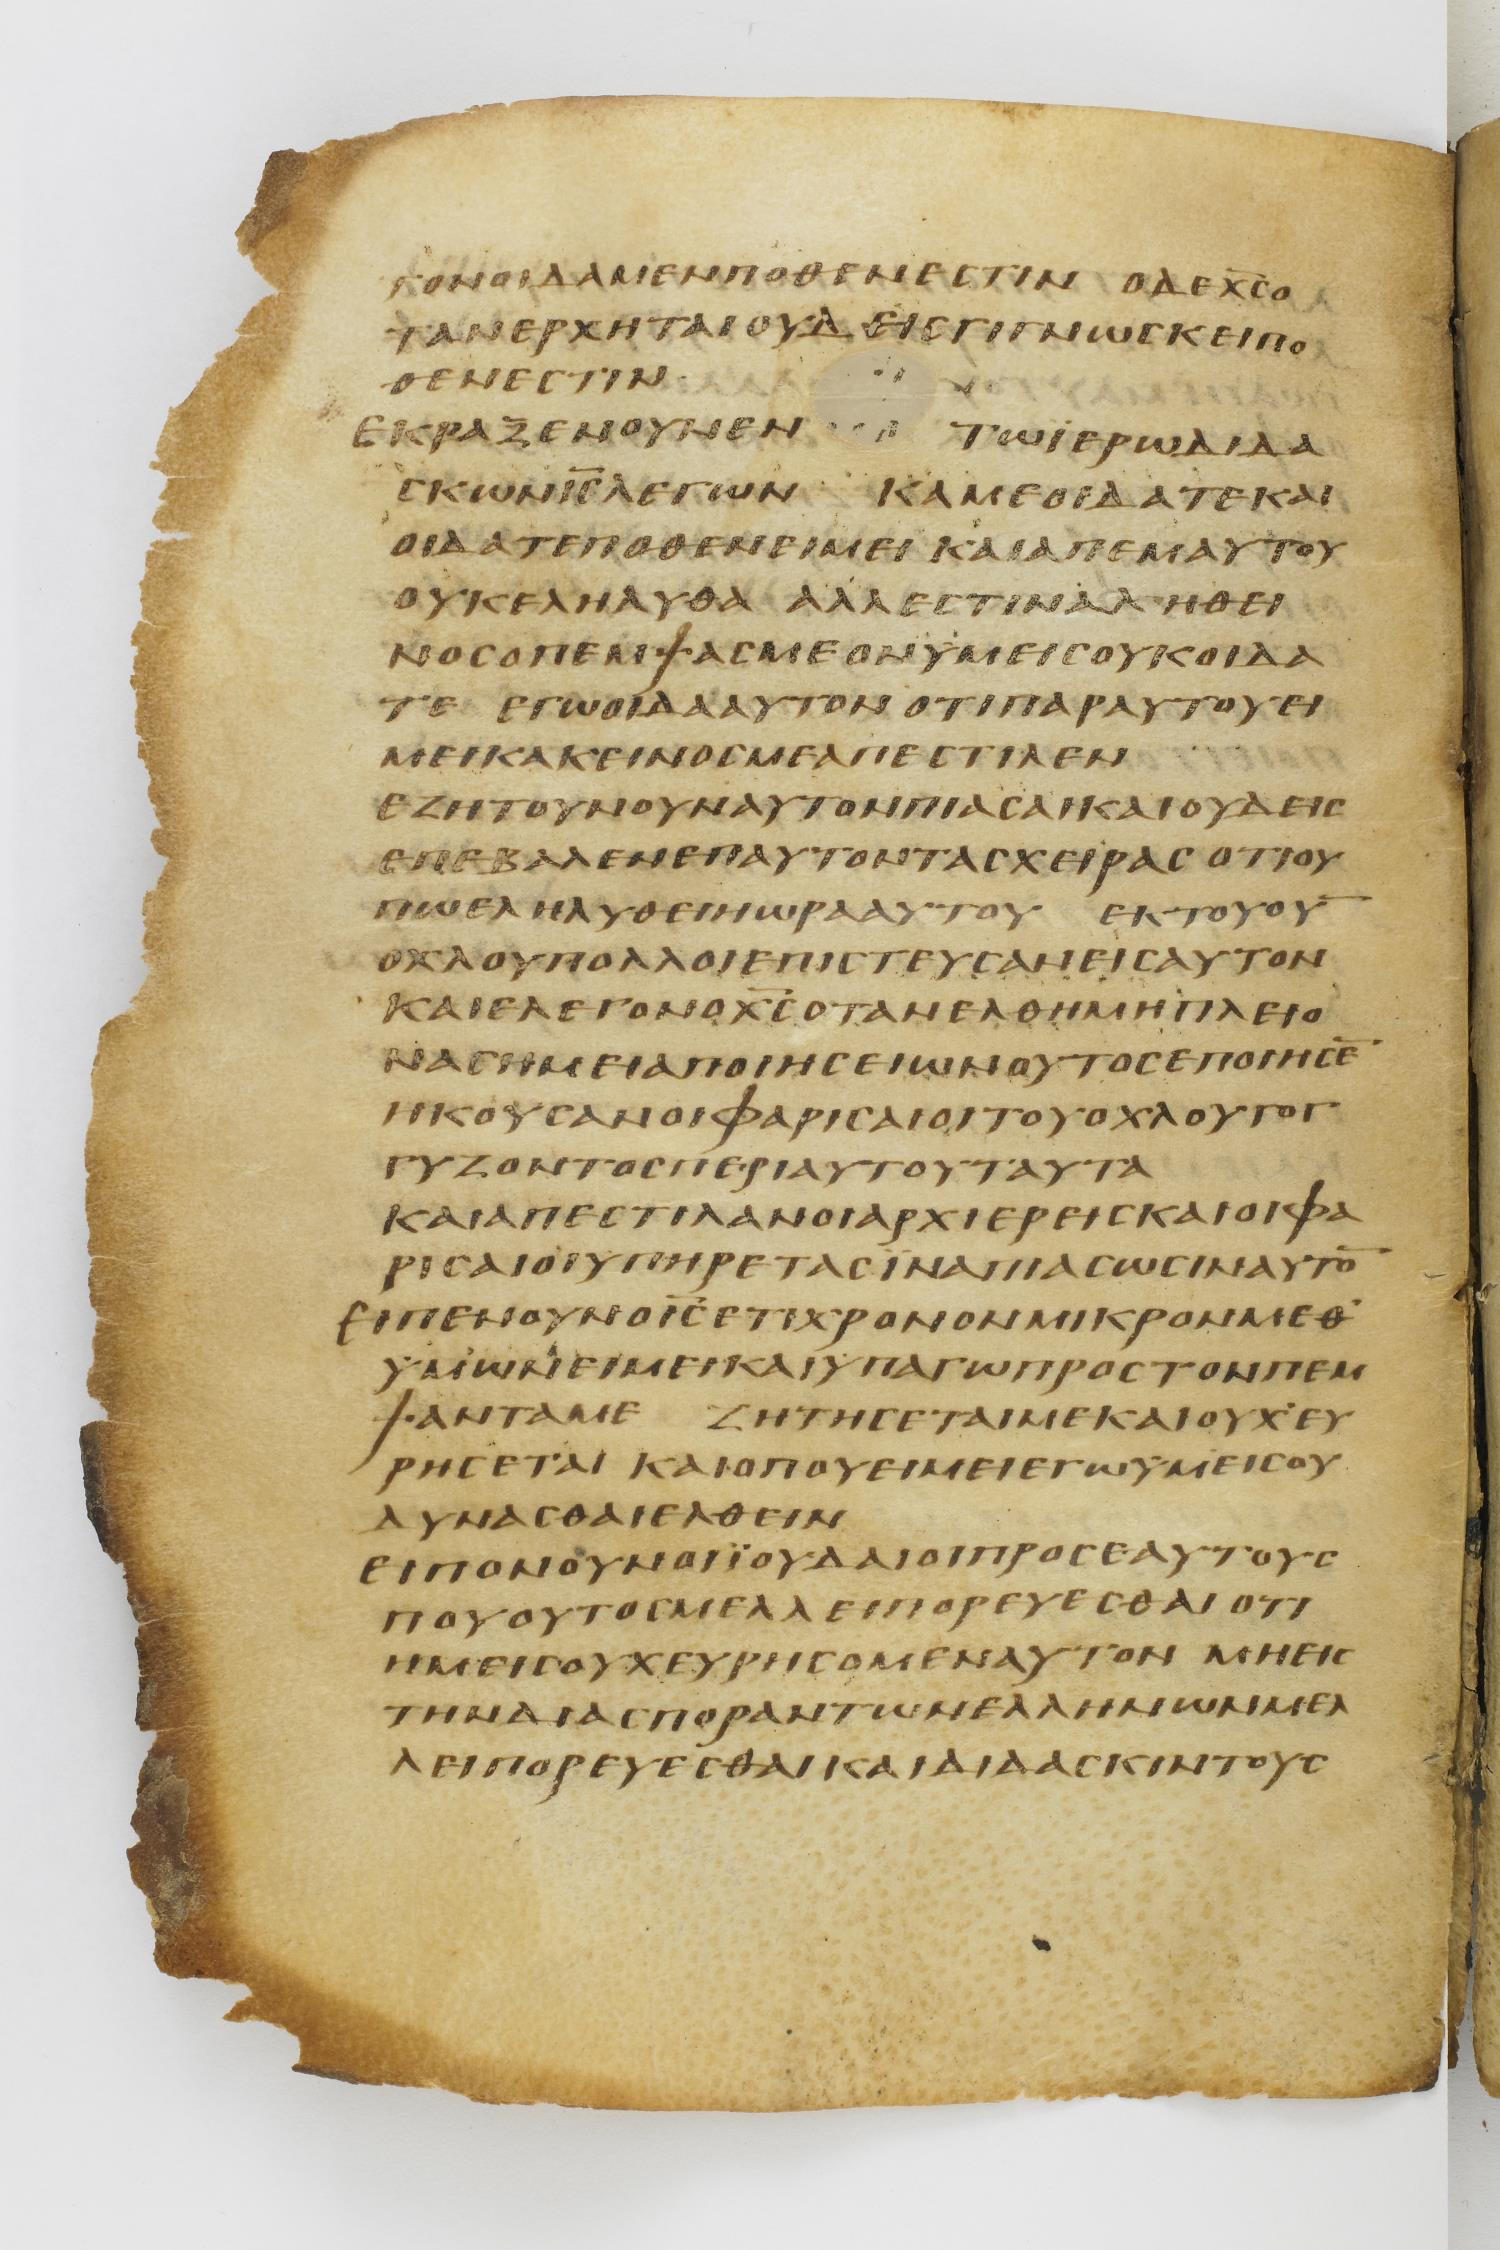 ΤΟΝΟΙΔΑΜΕΝΠΟΘΕΝΕΣΤΙΝ ΟΔΕΧ̅Σ̅Ο
ΤΑΝΕΡΧΗΤΑΙΟΥΔΕΙΣΓΙΓΝΩΣΚΕΙΠΟ
ΘΕΝΕΣΤΙΝ
ΕΚΡΑΞΕΝΟΥΝΕΝ ΤΩΪΕΡΩΔΙΔΑ
ΣΚΩΝΙ̅Σ̅ΛΕΓΩΝ ΚΑΜΕΟΙΔΑΤΕΚΑΙ
ΟΙΔΑΤΕΠΟΘΕΝΕΙΜΕΙ ΚΑΙΑΠΕΜΑΥΤΟΥ
ΟΥΚΕΛΗΛΥΘΑ ΑΛΛΕΣΤΙΝΑΛΗΘΕΙ
ΝΟΣΟΠΕΜΨΑΣΜΕΟΝΫΜΕΙΣΟΥΚΟΙΔΑ
ΤΕ ΕΓΩΟΙΔΑΑΥΤΟΝΟΤΙΠΑΡΑΥΤΟΥΕΙ
ΜΕΙΚΑΚΕΙΝΟΣΜΕΑΠΕΣΤΙΛΕΝ
ΕΖΗΤΟΥΝΟΥΝΑΥΤΟΝΠΙΑΣΑΙΚΑΙΟΥΔΕΙΣ
ΕΠΕΒΑΛΕΝΕΠΑΥΤΟΝΤΑΣΧΕΙΡΑΣ ΟΤΙΟΥ
ΠΩΕΛΗΛΥΘΕΙΗΩΡΑΑΥΤΟΥ ΕΚΤΟΥΟΥ̅
ΟΧΛΟΥΠΟΛΛΟΙΕΠΙΣΤΕΥΣΑΝΕΙΣΑΥΤΟΝ
ΚΑΙΕΛΕΓΟΝΟΧ̅Σ̅ΟΤΑΝΕΛΘΗΜΗΠΛΕΙΟ
ΝΑΣΗΜΕΙΑΠΟΙΗΣΕΙΩΝΟΥΤΟΣΕΠΟΙΗΣΕ̅
ΗΚΟΥΣΑΝΟΙΦΑΡΙΣΑΙΟΙΤΟΥΟΧΛΟΥΓΟΓ
ΓΥΖΟΝΤΟΣΠΕΡΙΑΥΤΟΥΤΑΥΤΑ
ΚΑΙΑΠΕΣΤΙΛΑΝΟΙΑΡΧΙΕΡΕΙΣΚΑΙΟΙΦΑ
ΡΙΣΑΙΟΙΥΠΗΡΕΤΑΣΪΝΑΠΙΑΣΩΣΙΝΑΥΤΟ̅
ΕΙΠΕΝΟΥΝΟΙ̅Σ̅ΕΤΙΧΡΟΝΟΝΜΙΚΡΟΝΜΕΘ’
ΥΜΩΝΕΙΜΕΙΚΑΙΥΠΑΓΩΠΡΟΣΤΟΝΠΕΜ
ΨΑΝΤΑΜΕ ΖΗΤΗΣΕΤΑΙΜΕΚΑΙΟΥΧ’ΕΥ
ΡΗΣΕΤΑΙ ΚΑΙΟΠΟΥΕΙΜΕΙΕΓΩΫΜΕΙΣΟΥ
ΔΥΝΑΣΘΑΙΕΛΘΕΙΝ
ΕΙΠΟΝΟΥΝΟΙΪΟΥΔΑΙΟΙΠΡΟΣΕΑΥΤΟΥΣ
ΠΟΥΟΥΤΟΣΜΕΛΛΕΙΠΟΡΕΥΕΣΘΑΙΟΤΙ
ΗΜΕΙΣΟΥΧΕΥΡΗΣΟΜΕΝΑΥΤΟΝ ΜΗΕΙΣ
ΤΗΝΔΙΑΣΠΟΡΑΝΤΩΝΕΛΛΗΝΩΝΜΕΛ
ΛΕΙΠΟΡΕΥΕΣΘΑΙΚΑΙΔΙΔΑΣΚΙΝΤΟΥΣ